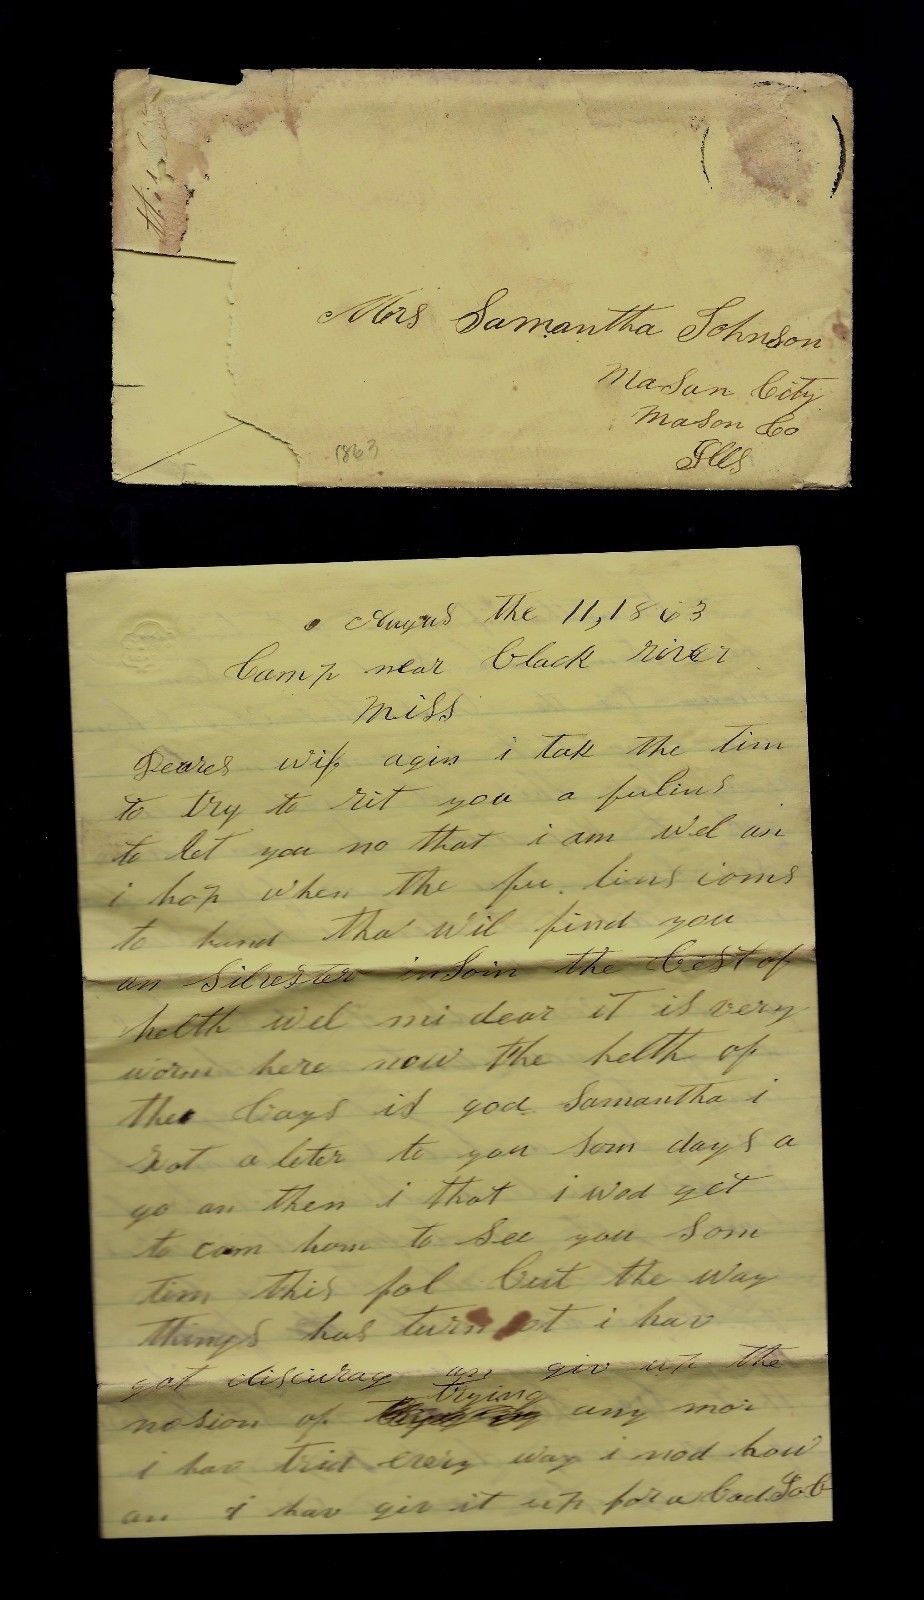 this
Mrs Samantha Johnson
Mason City
Mason Co
Ills
1863
Augus the 11, 1863
Camp near black river
Miss
Deares wif agin i tak the tim
to try to rit you a fu lins
to let you no that i am wel an
i hop when the fu lins coms
to hand tha wil find you
an Silvester in Join the best of
helth wel mi dear it is very
worm here now the helth of
the boys is god Samantha i
rot a leter to you som days a
go an then i that i wod get
to com hom to see you som
tim this fol but the way
things has turn ot i hav
got discurag an giv up the
nosion of trying any mor
i hav trid every way i nod how
an i hav giv it up for a bad Job